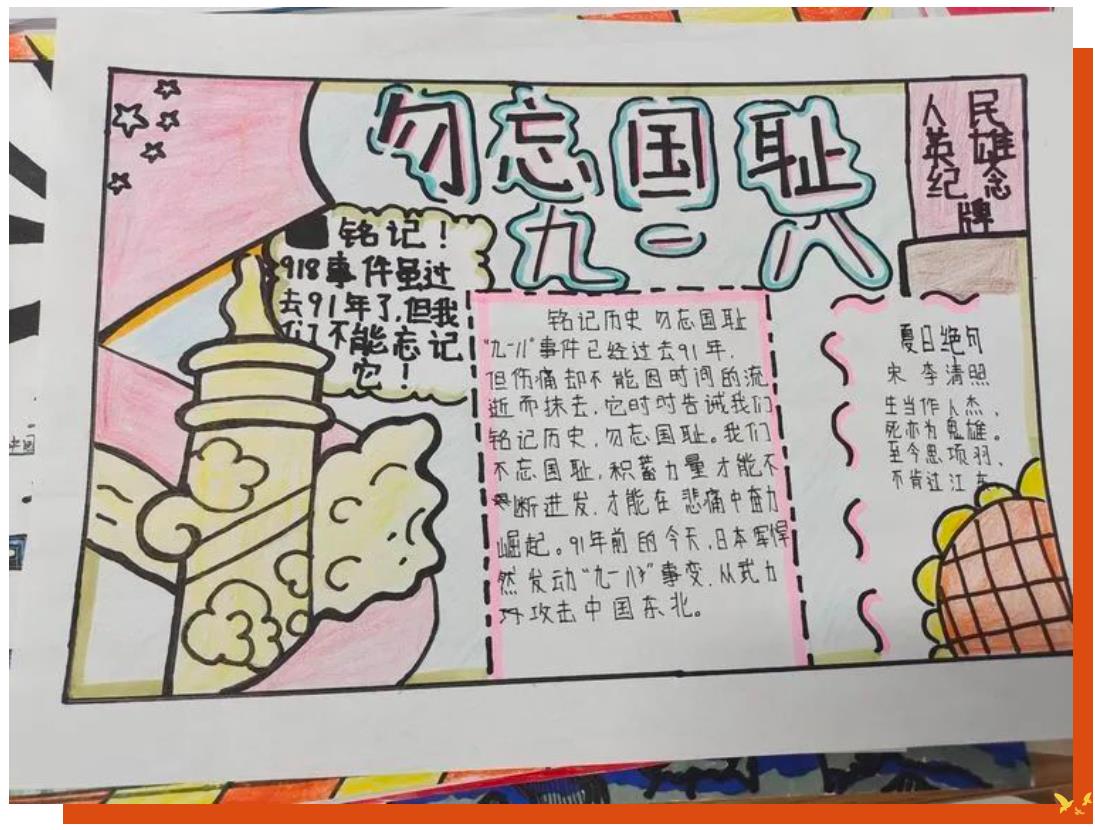 勿忘国耻
九一八
人民
英雄
纪念
牌
铭记！
918事件虽过
去91年了，但我
们不能忘记
它！
铭记历史 勿忘国耻
"九一八"事件已经过去91年，
但伤痛却不能因时间的流
逝而抹去，它时时告诫我们
铭记历史，勿忘国耻。我们
不忘国耻，积蓄力量才能不
断进发，才能在悲痛中奋力
崛起。91年前的今天，日本军悍
然发动"九一八"事变，从武力
攻击中国东北。
夏日绝句
宋 李清照
生当作人杰，
死亦为鬼雄。
至今思项羽，
不肯过江东